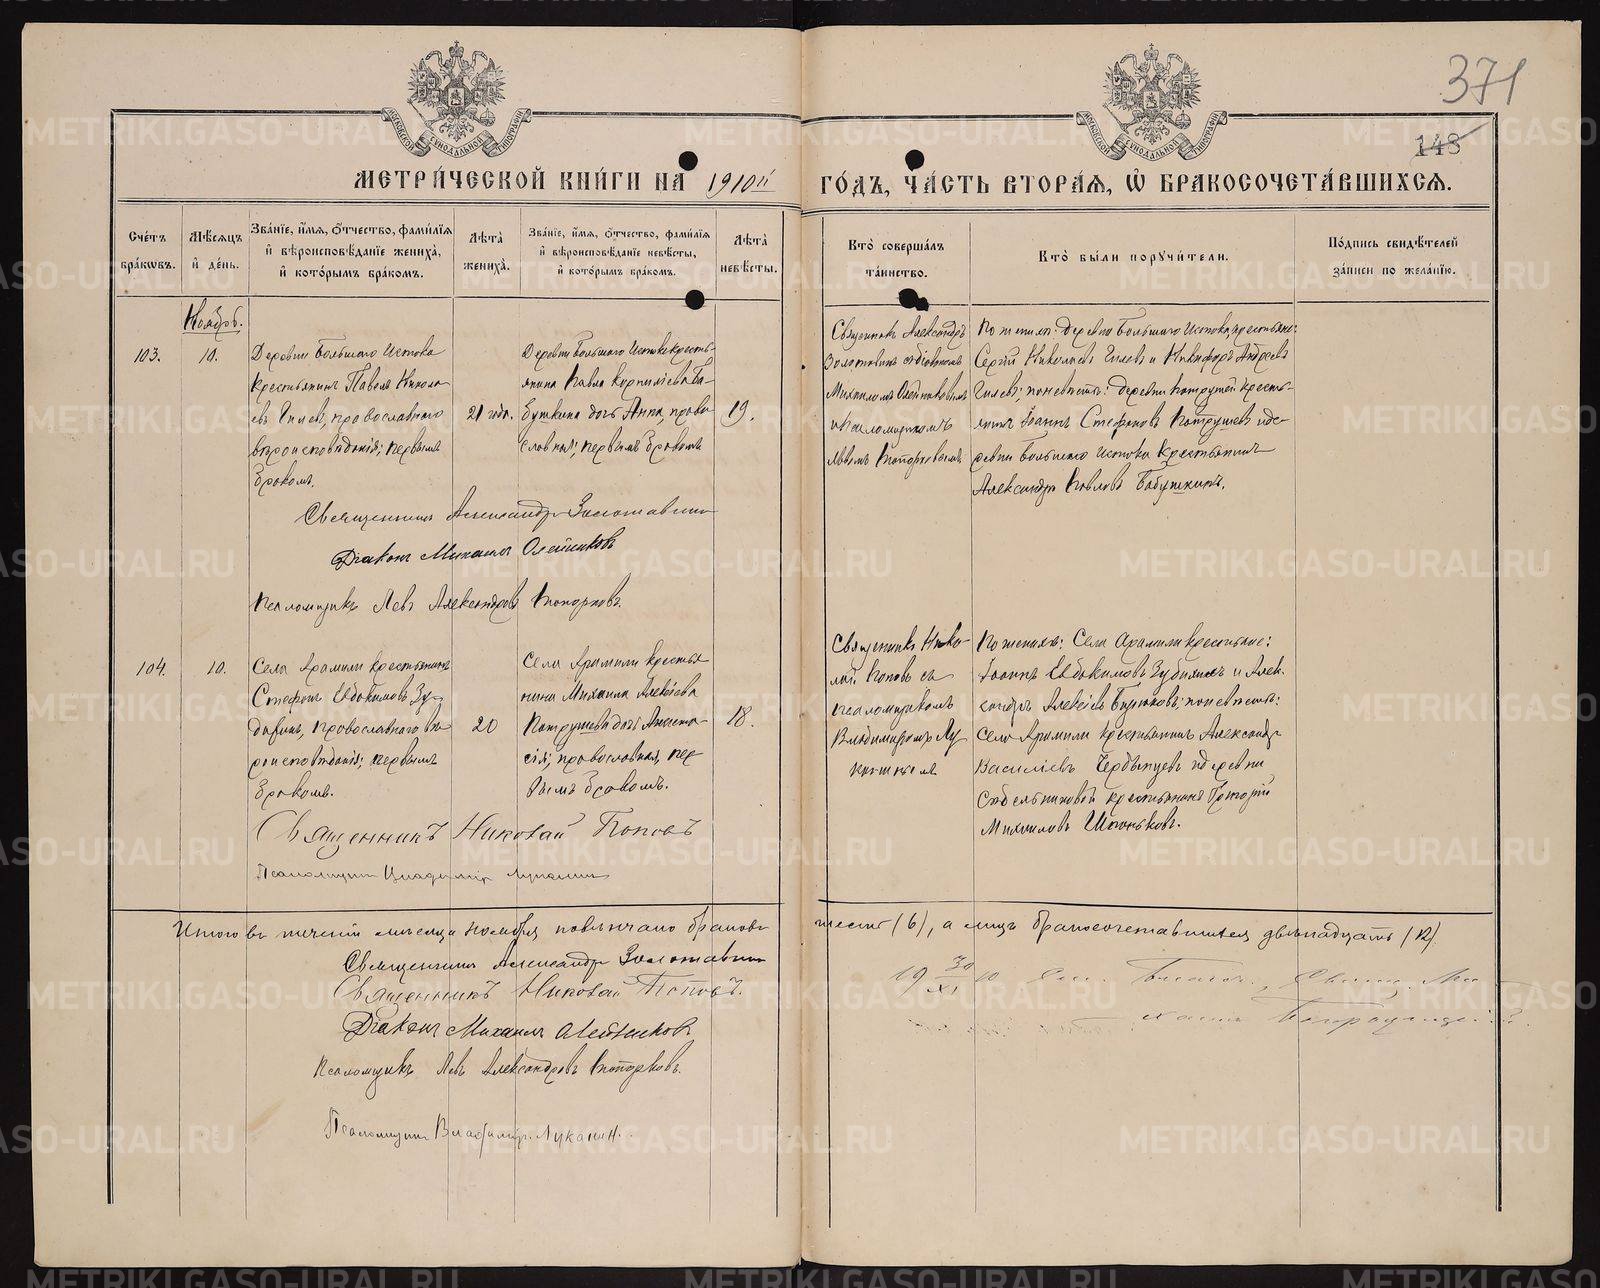 371
148
МЕТРИ́ЧЕСКОЙ КНИ́ГИ НА 1910й ГО́ДЪ, ЧА́СТЬ ВТОРА́Я, Ѡ БРАКОСОЧЕТА́ВШИХСЯ.
Сче́тъ бра́кѡвъ.
Мѣ́сяцъ и́ де́нь.
Зва́нїе, и́мя, ѻ́тчество, фами́лїя
и́ вѣроисповѣ́данїе жениха̀,
и́ кото́рымъ бра́комъ.
Лѣта̀ жениха̀.
Зва́нїе, и́мя, ѻ́тчество, фами́лїя
и́ вѣроисповѣ́данїе невѣ́сты,
и́ кото́рымъ бра́комъ.
Лѣта̀ невѣ́сты.
Кто̀ соверша́лъ
та́инство.
Кто̀ бы́ли порꙋчи́тели.
По́дпись свидѣ́телей
за́писи по жела́нїю.
Ноябрь.
103.
10.
Деревни Большаго Истока
крестьянинъ Павелъ Никола-
евъ Гилевъ, православнаго
вѣроисповѣданія; первымъ
бракомъ.
21 годъ.
Деревни Большаго Истока кресть-
янина Павла Корниліева Ба-
бушкина дочь Анна, право-
славная; первымъ бракомъ
19.
Священникъ Александръ
Золотавинъ съ діакономъ
Михаиломъ Олейниковымъ
и псаломщикомъ
Львомъ Топорковымъ
По женихѣ: деревни Большаго Истока, крестьяне:
Сергій Николаевъ Гилевъ и Никифоръ Андреевъ
Гилевъ; по невѣстѣ: деревни Патрушей кресть-
янинъ Іоаннъ Стефановъ Патрушевъ и де-
ревни Большаго Истока крестьянинъ
Александръ Павловъ Бабушкинъ.
Священникъ Александръ Золотавинъ
Діаконъ Михаилъ Олейниковъ
Псаломщикъ Левъ Александровъ Топорковъ.
104.
10.
Села Арамили крестьянинъ
Стефанъ Евдокимовъ Зу-
бринъ, православнаго вѣ-
роисповѣданія; первымъ
бракомъ.
20
Села Арамили крестья-
нина Михаила Алексѣева
Патрушева дочь Анаста-
сія; православная, пер-
вымъ бракомъ.
18.
Священникъ Нико-
лай Поповъ съ
псаломщикомъ
Владимиромъ Лу-
канинымъ
По женихѣ: Села Арамили крестьяне:
Іоаннъ Евдокимовъ и Алек-
сандръ Алексѣевъ; по невѣстѣ:
Села Арамили крестьянинъ Александръ
Василіевъ и деревни
крестьянинъ Григорій
Михаиловъ
Священникъ Николай Поповъ
Псаломщикъ Владимиръ Луканинъ
Итого въ теченіи мѣсяца ноября повѣнчано браковъ шесть (6), а лицъ бракосочетавшихся двѣнадцать (12)
Священникъ Александръ Золотавинъ
Священникъ Николай Поповъ.
Діаконъ Михаилъ Олейниковъ.
Псаломщикъ Левъ Александровъ Топорковъ.
Псаломщикъ Владимиръ Луканинъ.
19 30/XI 10